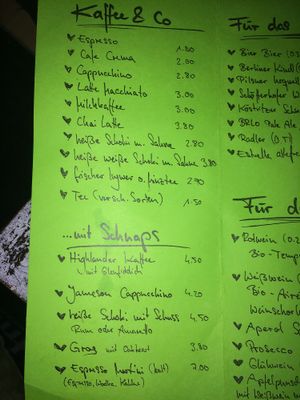 Kaffee & Co
Espresso 1.80
Cafe Crema 2.00
Cappucchino 2.80
Latte Macchiato 3.00
Milchkaffee 3.00
Chai Latte 3.80
heiße Schoki m. Sahne 2.80
heiße weiße Schoki m. Sahne 3.80
frischer Ingwer o. Minztee 2.90
Tee (versch. Sorten) 1.50
...mit Schnaps
Highlander Kaffee 4.50
mit Glenfiddich
Jameson Cappucchino 4.20
heiße Schoki mit Schuss 4.50
Rum oder Amaretto
Grog 3.80
Espresso Martini (kalt) 7.00
(Espresso, Wodka, Kahlua)
Für das
Bier Bier (0.
Berliner Kindl
Pilsner
Schöfferhofer W
Köstritzer Sch
BRLO Pale Ale
Radler
Für d
Rotwein (0.2
Bio - Temp
Weißwein (
Bio - Aire
Weinschorle
Aperol S
Prosecco
Glühwein
Apfelpuns
mit Weißwein